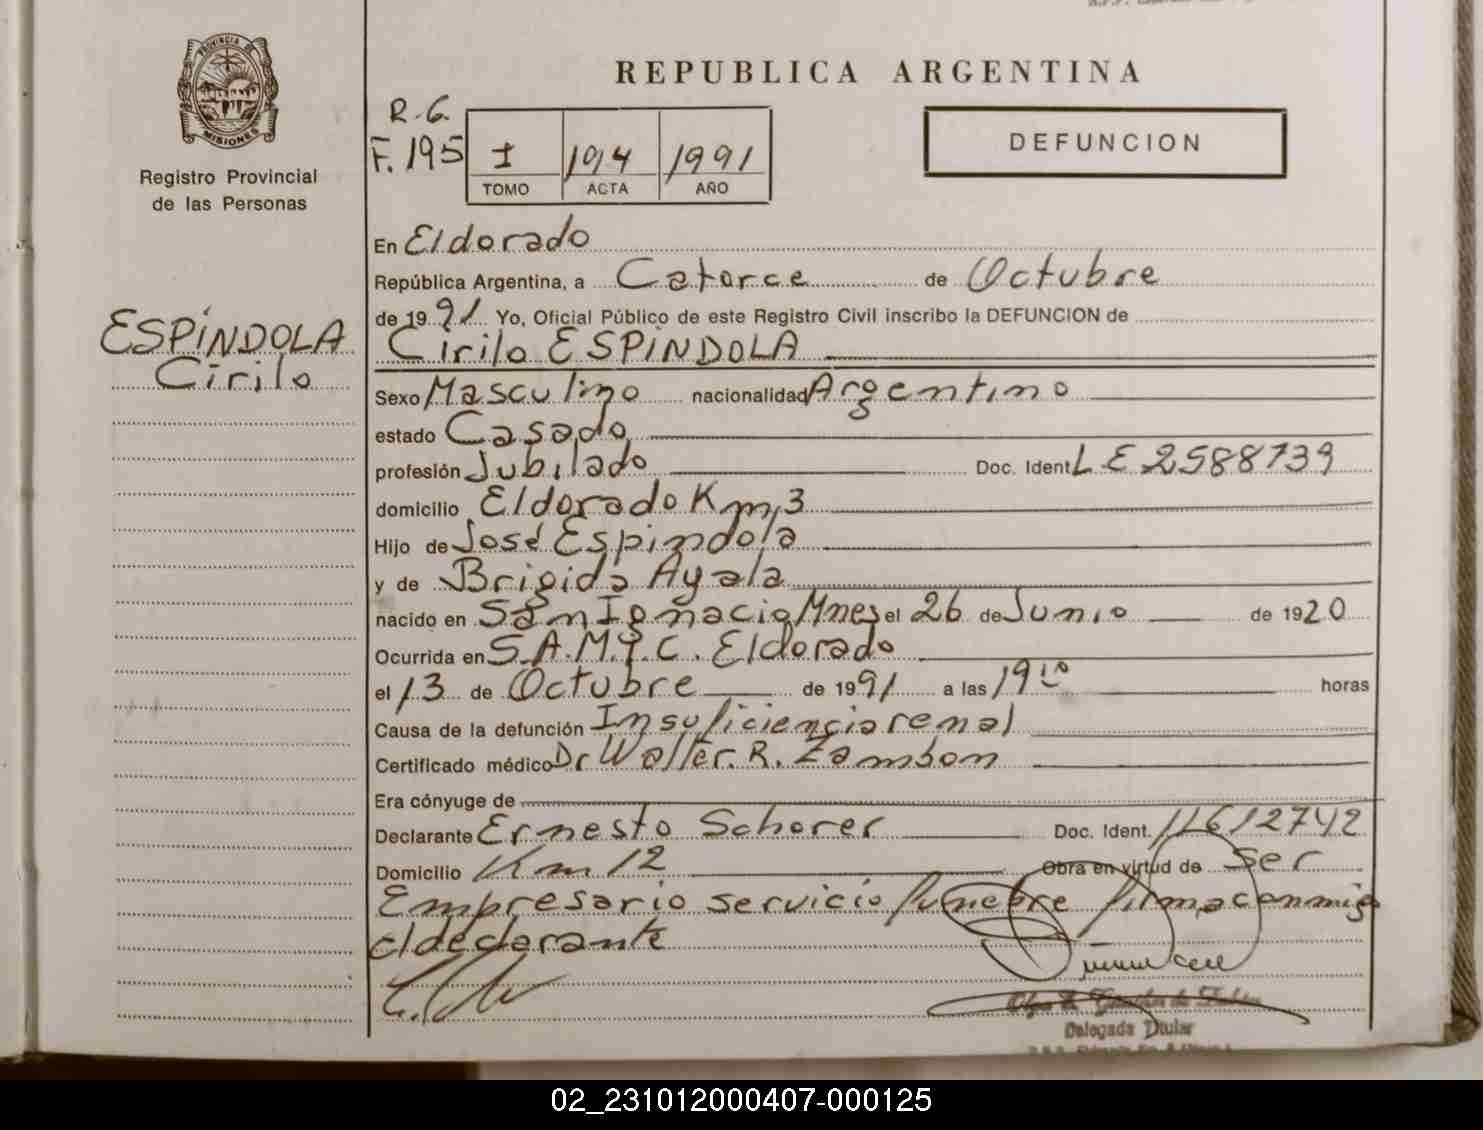 PROVINCIA DE
MISIONES
Registro Provincial
de las Personas
ESPÍNDOLA
Cirilo
REPUBLICA ARGENTINA
R.G.
F. 195
I 194 1991
TOMO ACTA AÑO
DEFUNCION
En Eldorado
República Argentina, a Catorce de Octubre
de 1991 Yo, Oficial Público de este Registro Civil inscribo la DEFUNCION de
Cirilo ESPÍNDOLA
Sexo Masculino nacionalidad Argentino
estado Casado
profesión Jubilado Doc. Ident LE 2588739
domicilio Eldorado Km 3
Hijo de José Espíndola
y de Brigida Ayala
nacido en San Ignacio Mnes el 26 de Junio de 1920
Ocurrida en S.A.M.I.C. Eldorado
el 13 de Octubre de 1991 a las 19 10 horas
Causa de la defunción Insuficiencia renal
Certificado médico Dr Walter. R. Zambon
Era cónyuge de
Declarante Ernesto Schorer Doc. Ident. 11612742
Domicilio Km 12 Obra en virtud de ser
Empresario servicio funebre firma conmigo
el declarante
Delegada Titular
02_231012000407-000125